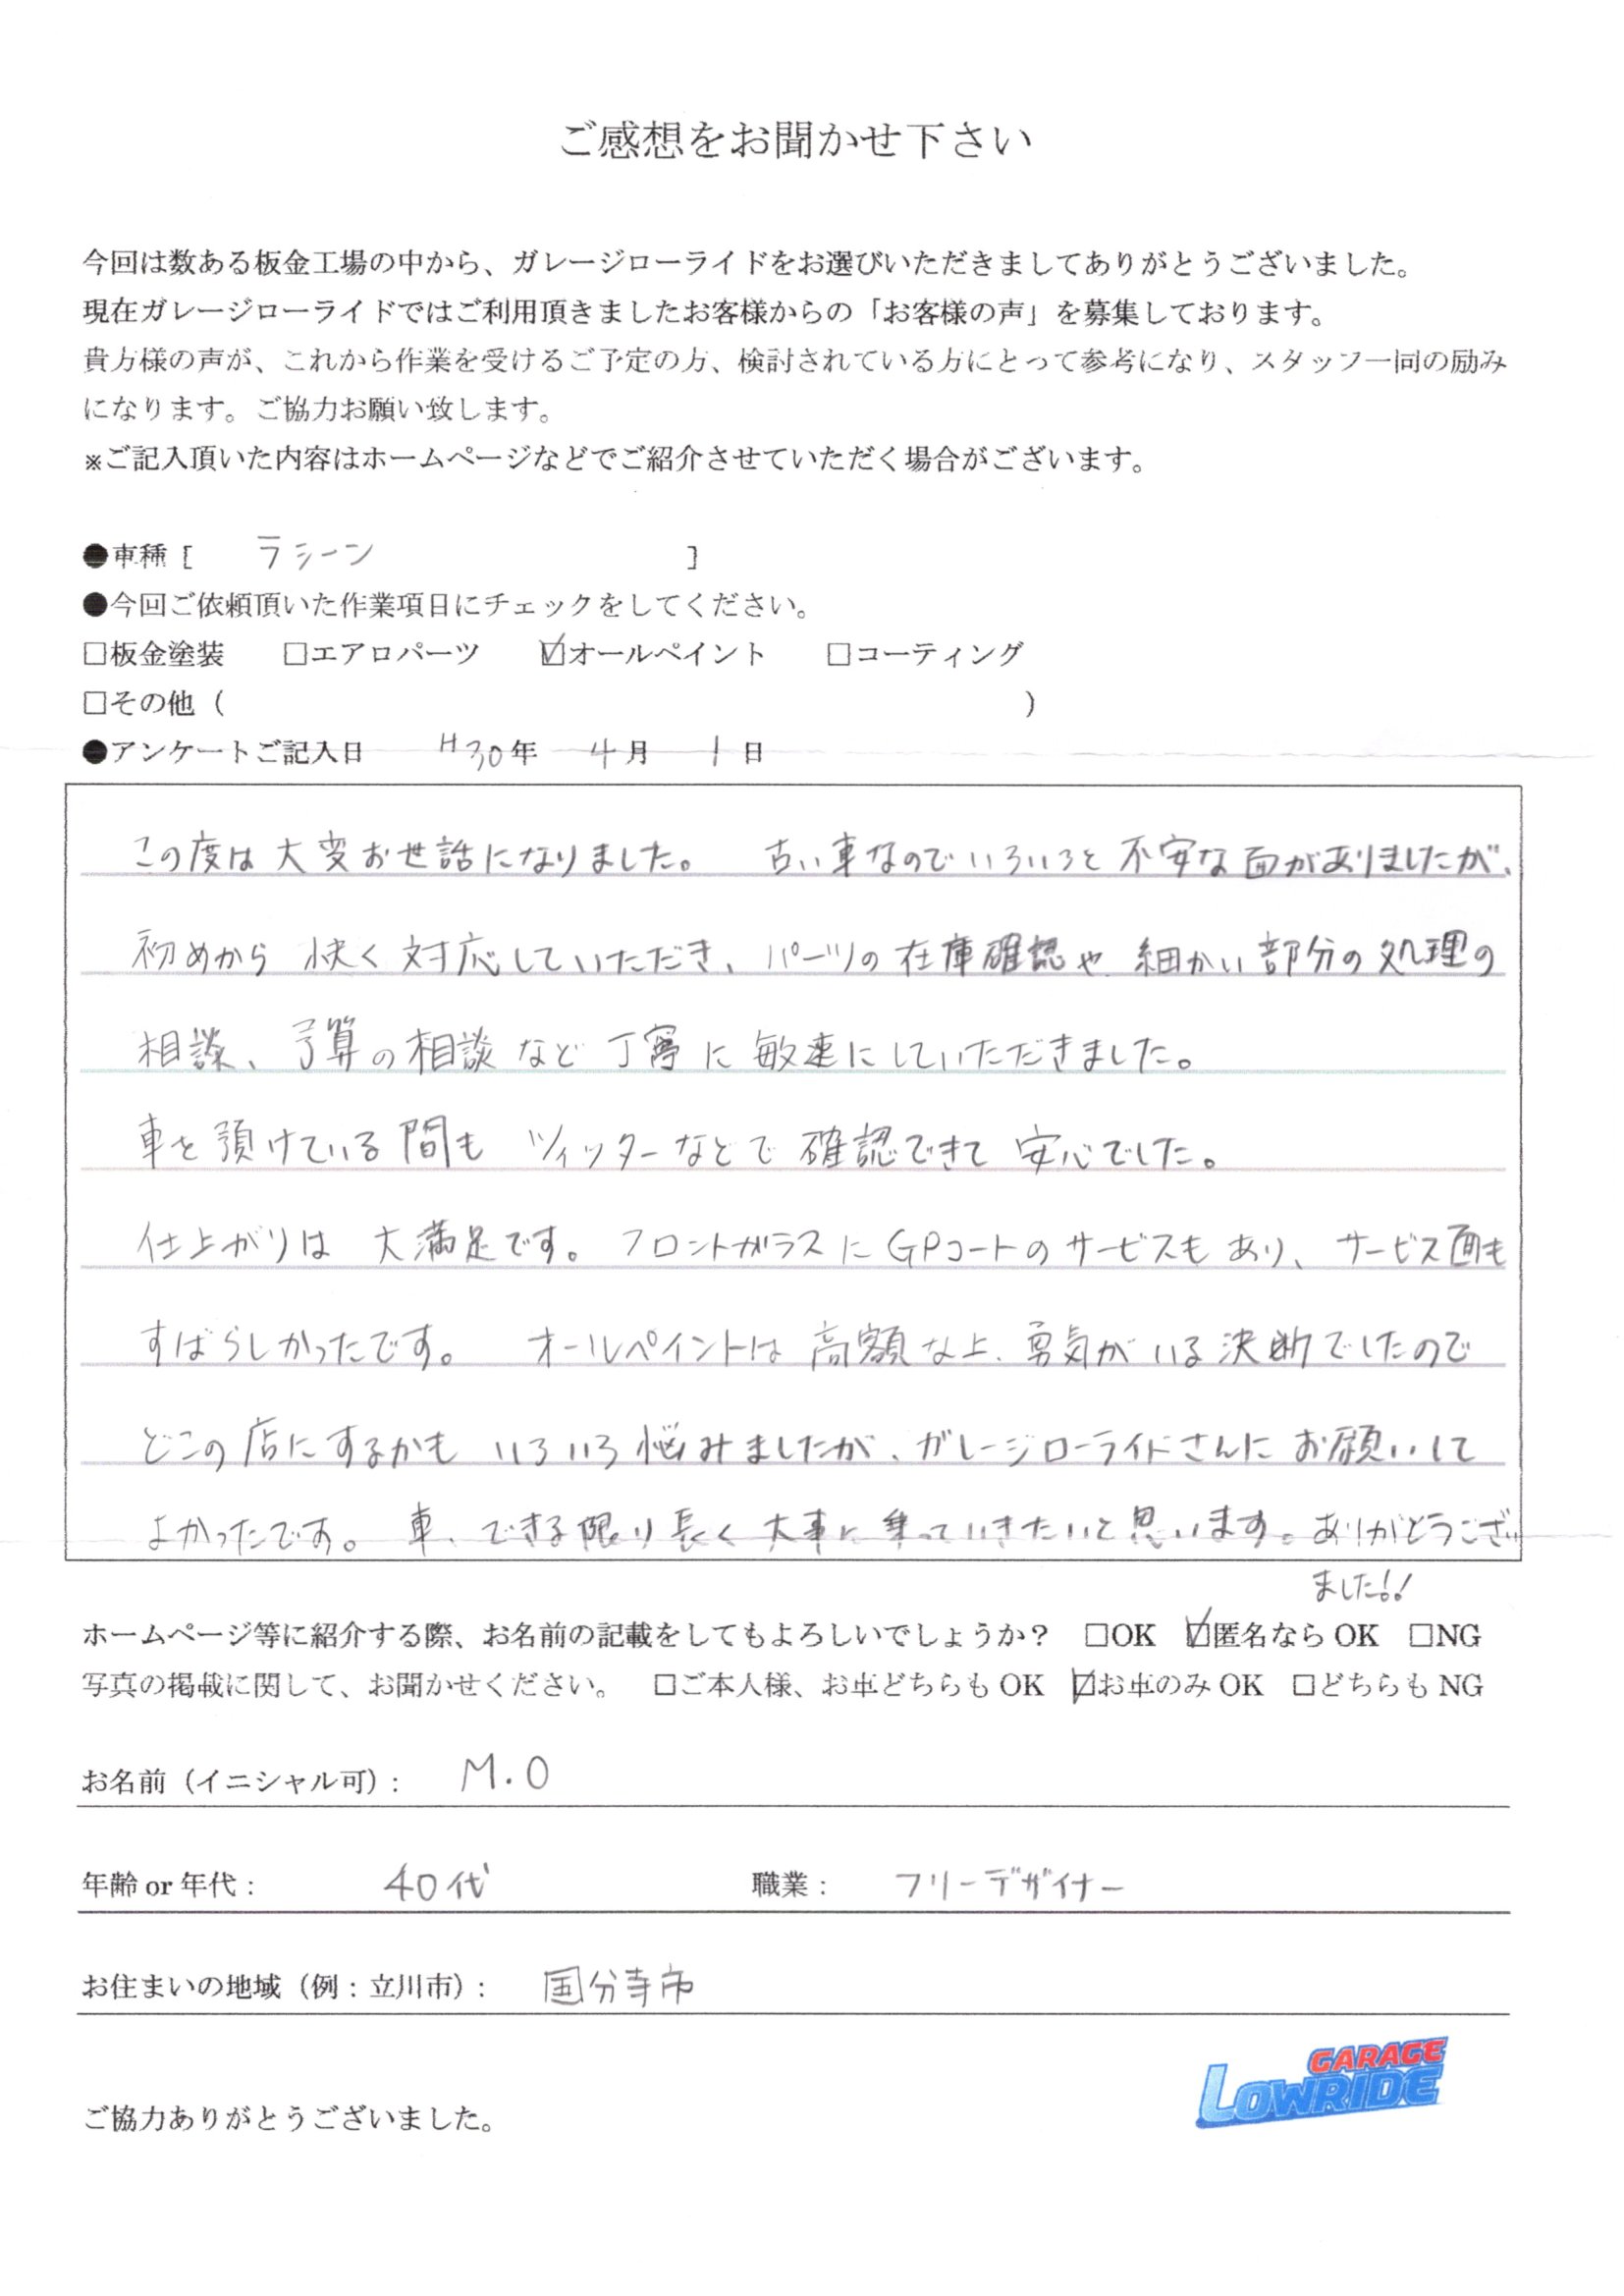 ご感想をお聞かせ下さい
今回は数ある板金工場の中から、ガレージローライドをお選びいただきましてありがとうございました。
現在ガレージローライドではご利用頂きましたお客様からの「お客様の声」を募集しております。
貴方様の声が、これから作業を受けるご予定の方、検討されている方にとって参考になり、スタッフ一同の励み
になります。ご協力お願い致します。
※ご記入頂いた内容はホームページなどでご紹介させていただく場合がございます。
●車種［ ラシーン ］
●今回ご依頼頂いた作業項目にチェックをしてください。
□板金塗装 □エアロパーツ ☑オールペイント □コーティング
□その他（ ）
●アンケートご記入日 H30年 4月 1日
この度は大変お世話になりました。 古い車なのでいろいろと不安な面がありましたが、
初めから 快く対応していただき、パーツの在庫確認や 細かい部分の処理の
相談、予算の相談など丁寧に敏速にしていただきました。
車を預けている間も ツイッターなどで確認できて 安心でした。
仕上がりは 大満足です。フロントガラスにGPコートのサービスもあり、サービス面も
すばらしかったです。 オールペイントは高額な上、勇気がいる決断でしたので
どこの店にするかも いろいろ悩みましたが、ガレージローライドさんにお願いして
よかったです。 車、できる限り長く大事に乗っていきたいと思います。ありがとうござい
ました!!
ホームページ等に紹介する際、お名前の記載をしてもよろしいでしょうか？ □OK ☑匿名ならOK □NG
写真の掲載に関して、お聞かせください。 □ご本人様、お車どちらもOK ☑お車のみOK □どちらもNG
お名前（イニシャル可）： M.O
年齢or年代： 40代 職業： フリーデザイナー
お住まいの地域（例：立川市）： 国分寺市
GARAGE
LOWRIDE
ご協力ありがとうございました。